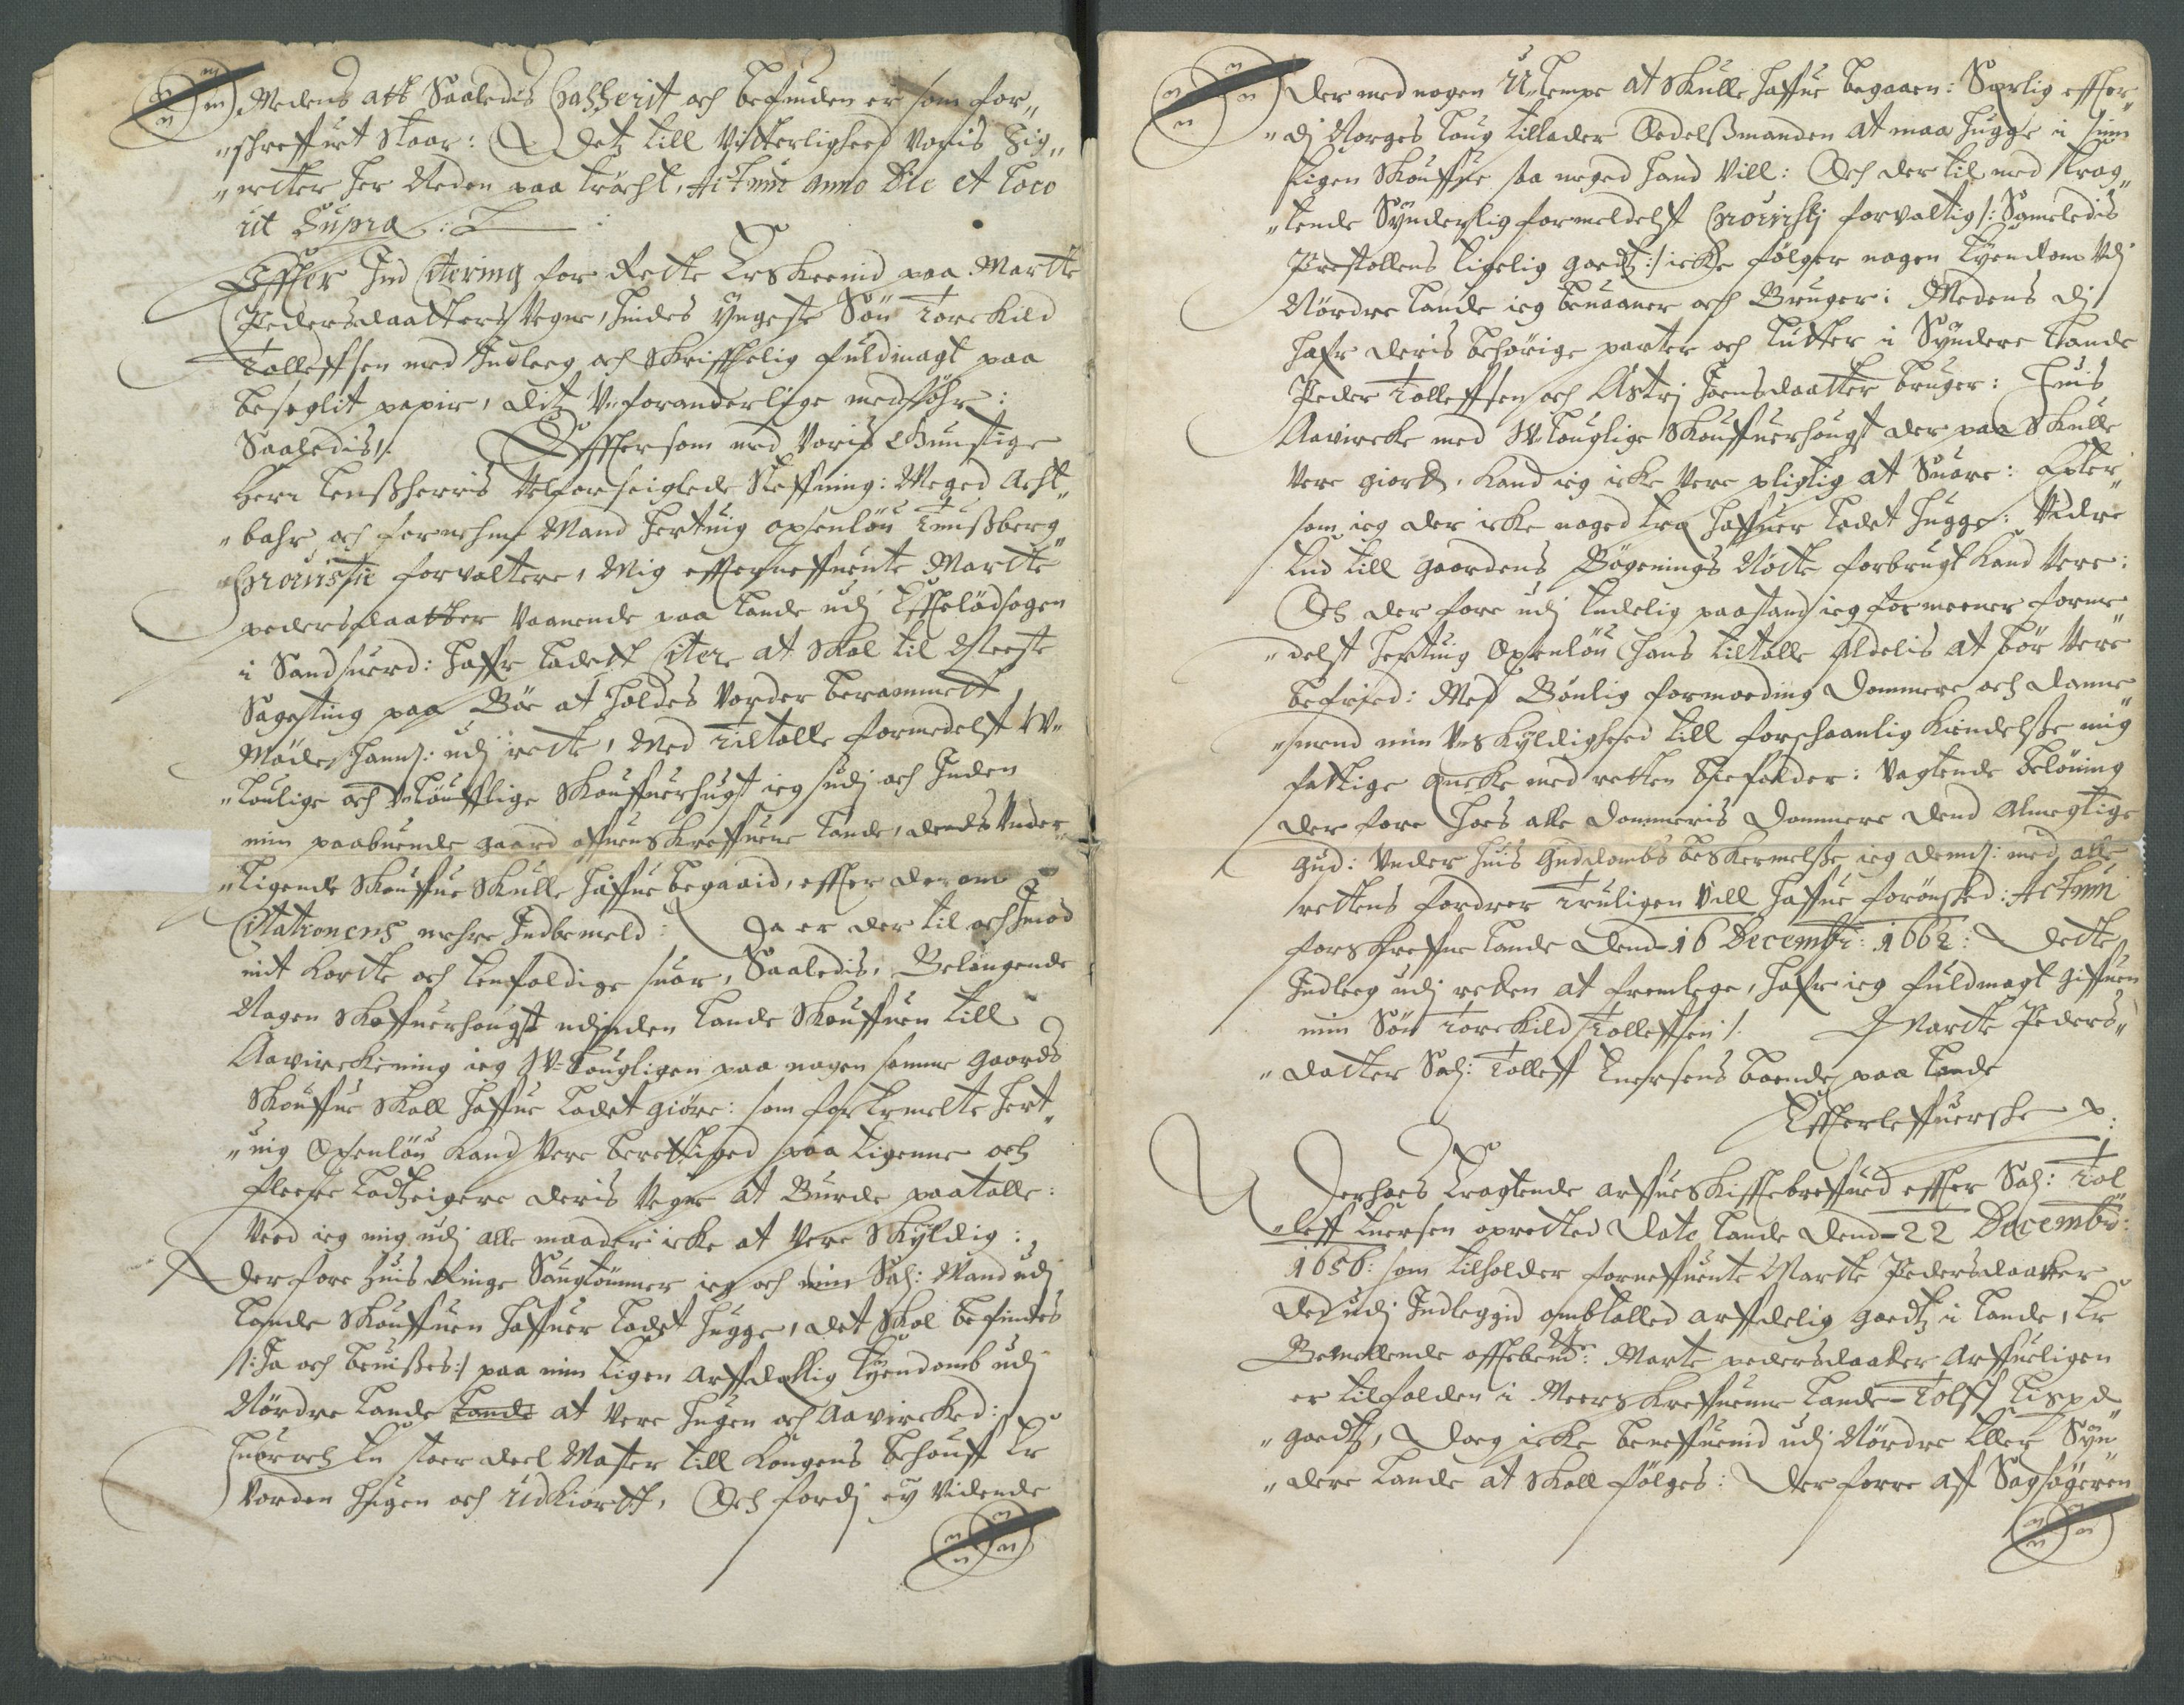 Medens att Saaledis Passerit och befunden er som for„
„schreffuet staar: Detz till Vitterligheed Voris Zig„
„netter her Neden paa trÿcht, Actum Anno Die et Loco
ut Supra :
Effter Ind Citering for Rette Erskeenid paa Marte
Pedersdaatters Vegne, hindes Yngeste Sön Torekild
Tolleffsen med Indleeg och skrifftelig fuldmagt paa
beseglit papir, ditz Vforanderlige medföhr:
Saaledis/. Effttersom med Voris Gunstige
Herr Lensherris Velforseiglede Steffning: Meged Acht„
„bahr och fornehme Mand Hertuig Opsenlöu Tunßberg
Prouistie forvaltere, Mig effterneffnente Marte
pedersdaatter Vaanende paa Lande udj Efftelödsogen
i Sandsuerd: Haffr Ladett Citere at skal til Neeste
Sageting paa Böe at holdes Vorder berammett,
Möde hannß: udj rette, Med Tiltalle formedelst W„
„Loulige och Vlöufflige Skouffuerhugst ieg udj och Inden
min paaboende gaard offuenskreffuene Lande, dends Under
„Ligende Skouffue Skulle haffue begaaid, effter derom
Citationens mehre Indbemeld: Da er der til och Imod
mit korte och Eenfoldige suar, Saaledis, Belangende
Nogen Skoffuerhougst udjnden Lande Skouffuen till
Aavirckening ieg W-Lougligen paa nogen somme gaards
Skouffue Skall haffue Ladet giöre: som forbemelte Hert„
„uig Opsenlöu kand Vere berettiged paa Ligenne och
fleere Lodtzeigere deris Vegne at Burde paatalle:
Veed ieg mig udj alle maader icke at Vere Skÿldig:
Derfore huis Ringe Saugtömmer ieg och min Sal: Mand udj
Lande Skouffuen haffuer Ladet hugge, det Skal befindes
/:Ja och beuisses:/ paa min Eigen Arffdallig Eyendomb udj
Nördre Lande Lande at Vere hugen och Aavircked:
huoroch En stoer deel Master till Kongens behouff Er
Vorden hugen och udkiortt, Och fordj ey Vidende
Der med nogen U-Lempe at skulle haffue begaaen: Sarlig effter„
„dj Norges Loug tillader Oedelßmanden at maa hugge i sinn
Eigen Skouffue saa meged hand Vill: Och der til med trag„
„tende Sÿnderlig formeldelst Prouistj forvaltig /: Sameledis
Prestollens Eigelig goedtz :/ icke fölger nogen Eyendom Udj
Nördre Lande ieg beuaaner och Bruger: Medens dj
hafr deris behörige parter och Lutter i Sÿndere Lande
Peder Tolleffsen och Astrj Joensdaatter bruger: Huis
Aavircke med W-Louglige Skouffuerhougst der paa Skulle
Vere giordt, kand ieg icke Vere pligtig at Suare: Efter
som ieg der icke noged tra haffuer Ladet hugge: Videre
End till gaardens Bögnings Nötte forbrugt kand Vere:
Och der fore udj Endelig paastand ieg formeener forme
„delst Hertuig Opsenlöu hans tiltalle Aldelis at bör Vere
befried: Med Bönlig formoeding Dommere och danne
„mend min Vskÿldigheed till forschaanlig kiendelße mig
fattige Encke med retten biefalder: Vagtende belöning
der fore hoes alle Dommeris Dommere dend Almegtige
Gud: Under huis Guddombs beskermelße ieg dennß: med alle
rettens fordrer Truligen Vill haffue forönsked: Actum
forskreffne Lande dend 16 Decembr: 1662: Dette
Indleeg udj retten at fremlege, hafr ieg fuldmagt giffuen
min Sön Torekild Tolleffsen /. Marte Peders„
„datter Sal: Tolleff Euersens boende paa Lande
Effterleffuersche p:
Derhoes Eragtende arffueskifftebreffued effter Sal: Tol
„leff Euersen opretted Dato Lande dend 22 Decembr:
1656: som tilholder forneffnente Marte Pedersdaatter
Ded udj Indleggid ombtalled arffdelig goedtz i Lande, Er
Bemellende offtebemt: Marte pedersdaater Arffueligen
er tilfalden i Meerskreffuenne Lande Tolff Lispd
„goedtz, Dog icke beneffuenid udj Nördre Eller Sÿn„
„dere Lande at skall fölges: Derforre aff Sagsögeren